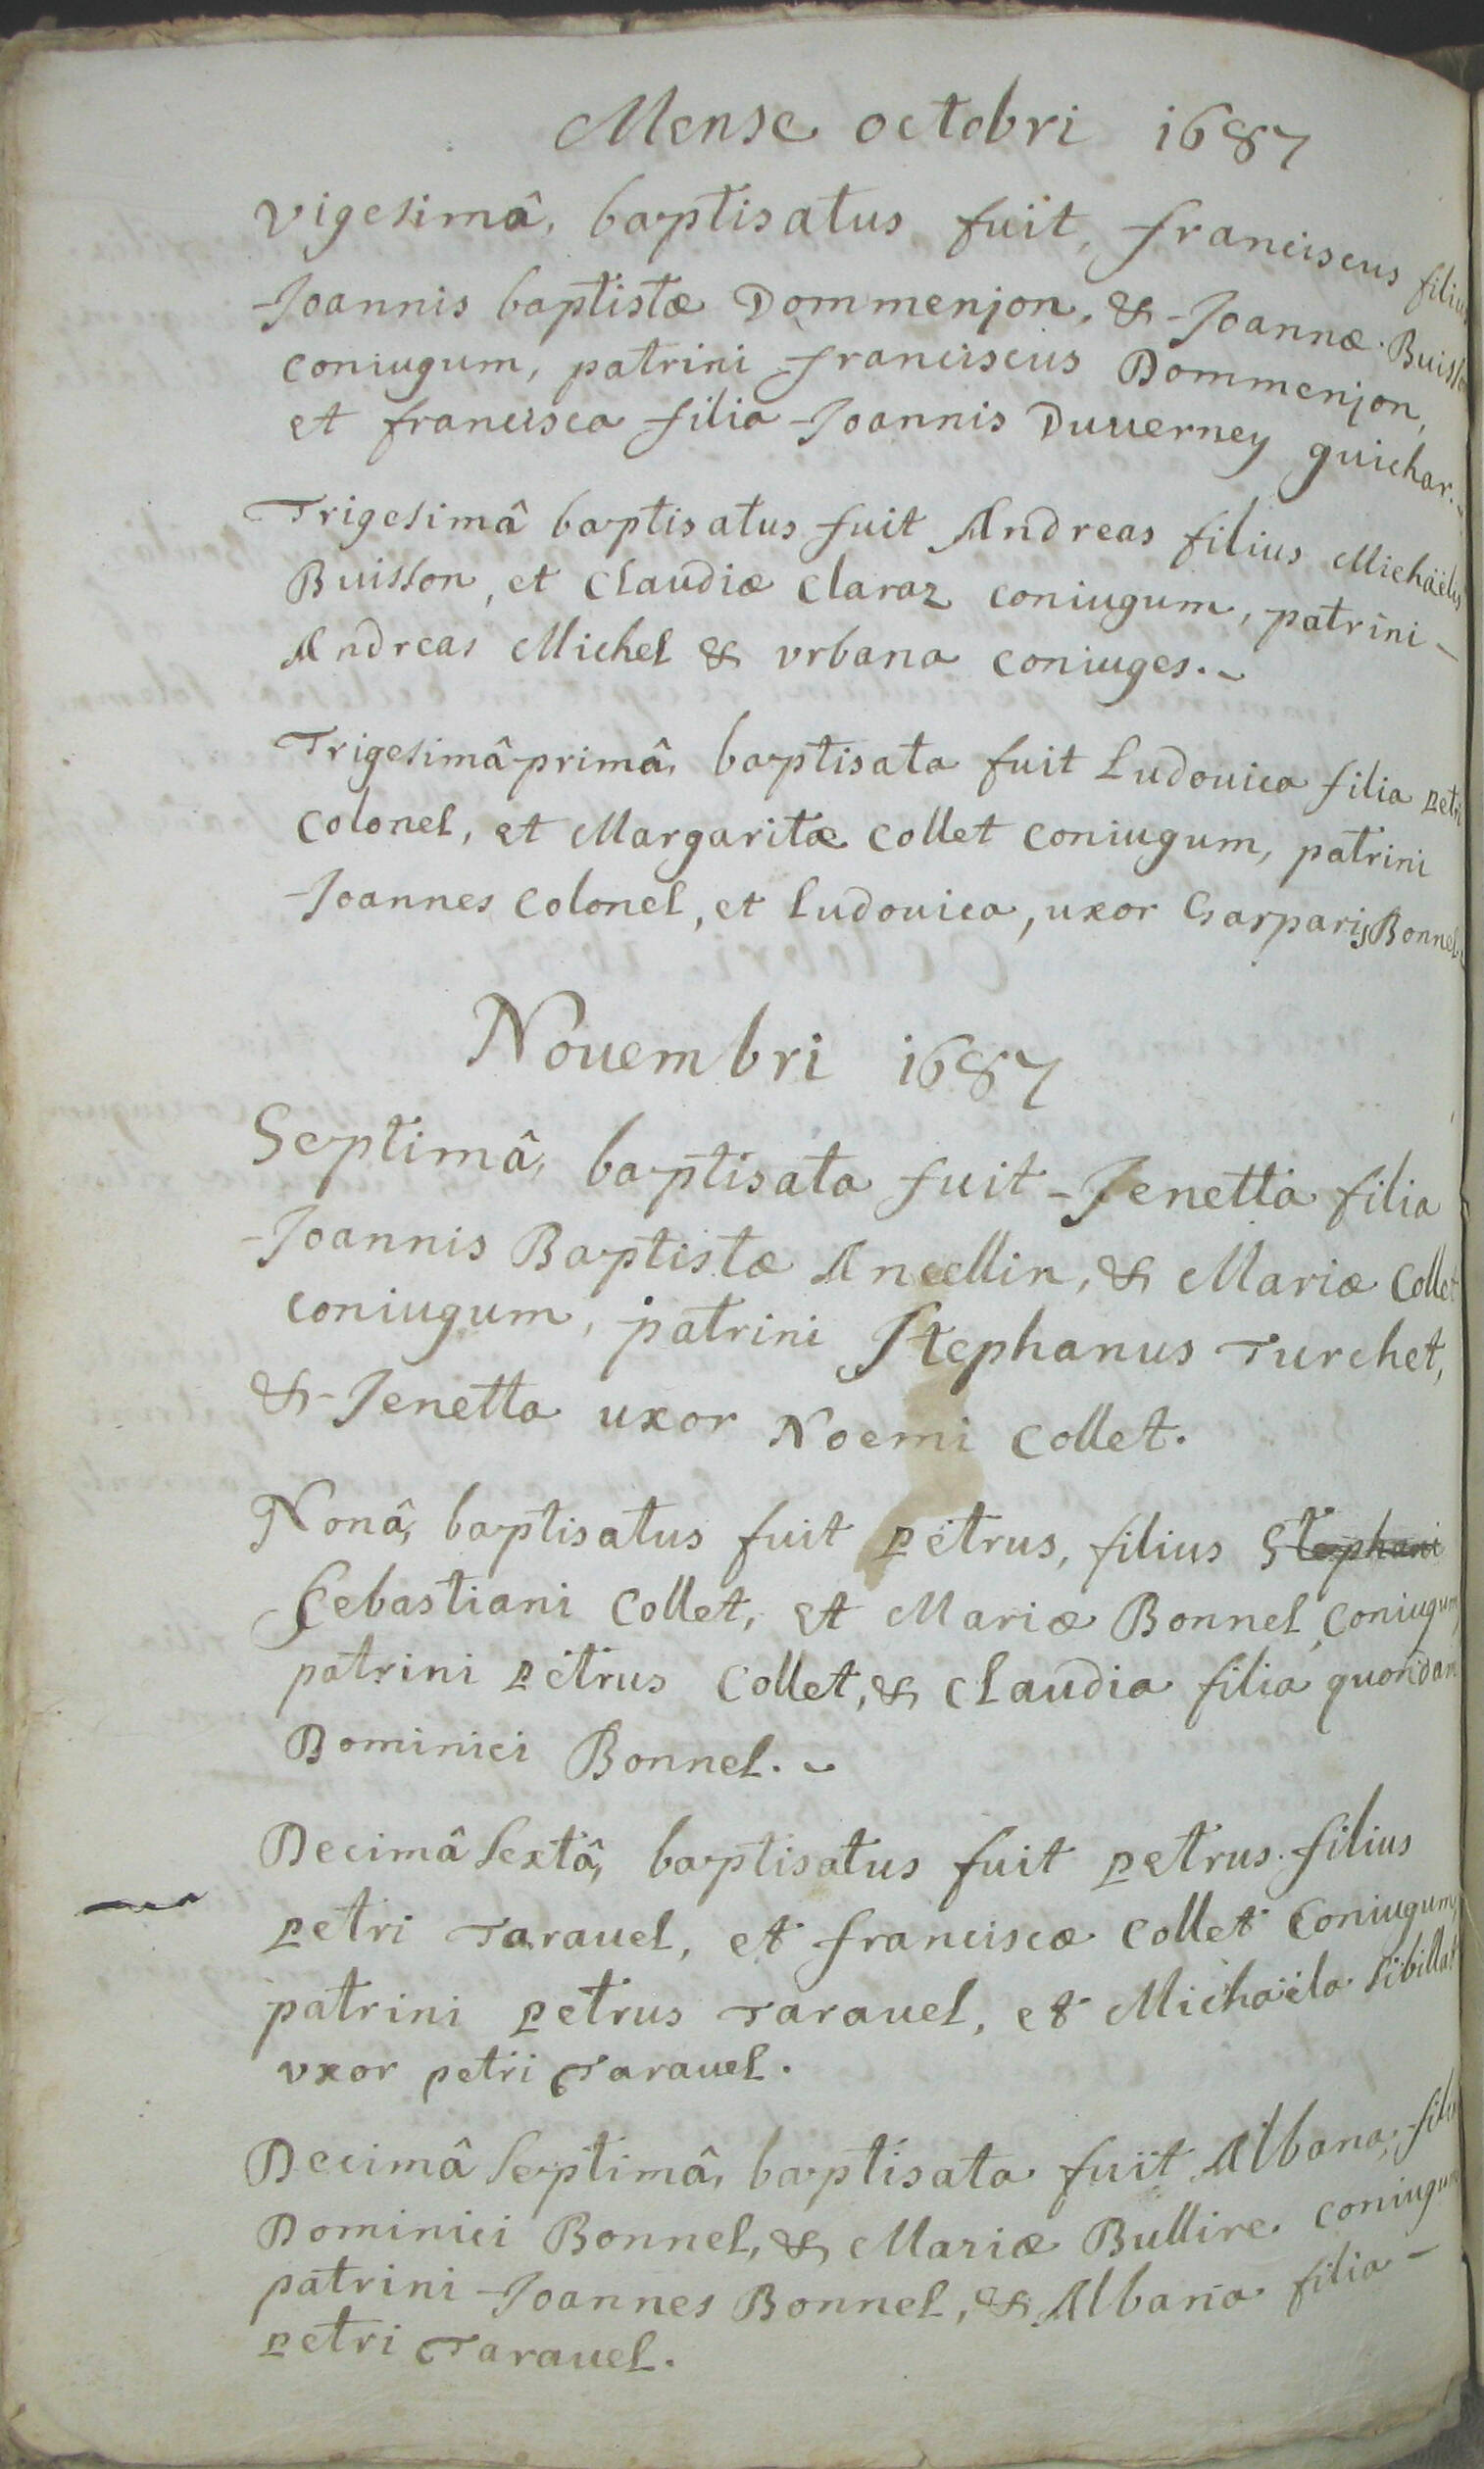 Mense octobri 1687
vigesimâ, baptisatus fuit, franciscus filius
Joannis baptistæ Dommenjon, & Joannæ Buisson
coniugum, patrini franciscus Dommenjon,
et francisca filia Joannis Duuerney guichar.
Trigesimâ baptisatus fuit Andreas filius Michäelis
Buisson, et Claudiæ Claraz coniugum, patrini
Andreas Michel & vrbana coniuges.
Trigesimâ primâ, baptisata fuit Ludouica filia petri
Colonel, et Margaritæ Collet coniugum, patrini
Joannes Colonel, et Ludouica, uxor Gasparis Bonnel
Nouembri 1687
Septimâ, baptisata fuit Jenetta filia
Joannis Baptistæ Ancellin, & Mariæ Collet
coniugum, patrini Stephanus Turchet,
& Jenetta uxor Noemi Collet.
Nonâ, baptisatus fuit petrus, filius Stephani
Sebastiani Collet, et Mariæ Bonnel, coniugum,
patrini petrus Collet, & Claudia filia quondam
Dominici Bonnel.
Decimâ sextâ, baptisatus fuit petrus filius
petri Tarauel, et franciscæ Collet Coniugum,
patrini petrus Tarauel, et Michäela Sibillat
vxor petri Tarauel.
Decimâ septimâ, baptisata fuit Albana, filia
Dominici Bonnel, & Mariæ Bullire coniugum
patrini Joannes Bonnel, & Albana filia
petri Tarauel.